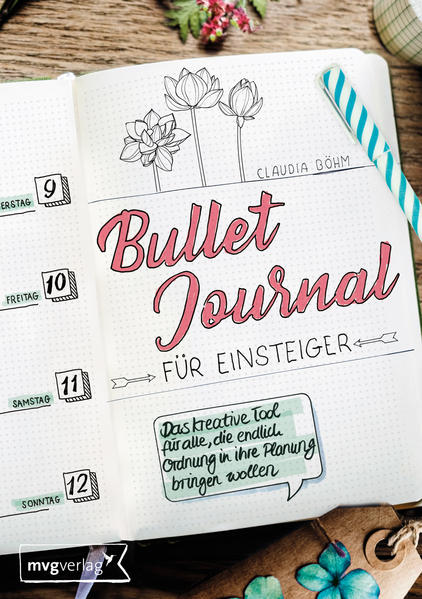 CLAUDIA BÖHM
ERSTAG
9
Bullet
Journal
FREITAG
10
FÜR EINSTEIGER
SAMSTAG
11
Das kreative Tool
für alle, die endlich
Ordnung in ihre Planung
bringen wollen
SONNTAG
12
mvgverlag